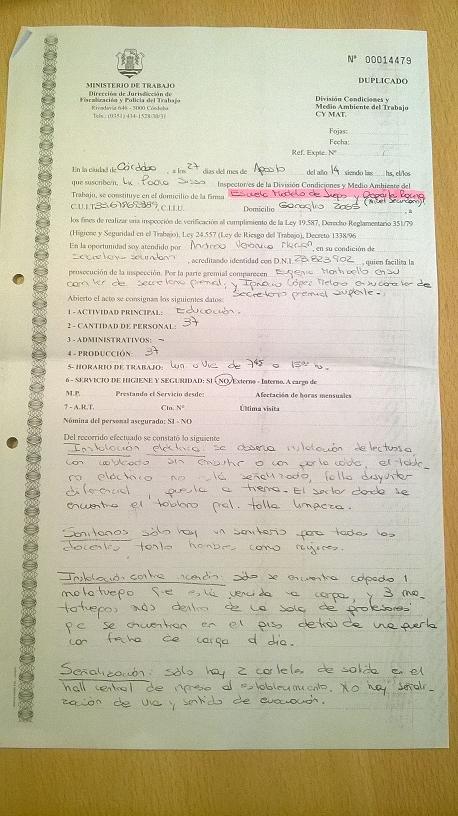 Nº 00014479
DUPLICADO
MINISTERIO DE TRABAJO
Dirección de Jurisdicción de
Fiscalización y Policía del Trabajo
Rivadavia 646 - 5000 Córdoba
Tels.: (0351) 434-1528/30/31
División Condiciones y
Medio Ambiente del Trabajo
CY MAT.
Fojas:
Fecha:
Ref. Expte. Nº
En la ciudad de Córdoba, a los 27 días del mes de Agosto del año 14 siendo las hs, el/los
que suscriben, Lic. Paola Inspector/es de la División Condiciones y Medio Ambiente del
Trabajo, se constituye en el domicilio de la firma Escuela Modelo de
C.U.I.T. C.I.I.U. Domicilio (Nivel Secundario), a
los fines de realizar una inspección de verificación al cumplimiento de la Ley 19.587, Decreto Reglamentario 351/79
(Higiene y Seguridad en el Trabajo), Ley 24.557 (Ley de Riesgo del Trabajo), Decreto 1338/96
En la oportunidad soy atendido por Andrea Veronica en su condición de
Secretaria , acreditando identidad con D.N.I. 23.823.902, quien facilita la
prosecución de la inspección. Por la parte gremial comparecen Eugenia en su
caracter de secretaria gremial, y Ignacio López en su caracter de
Secretario gremial suplente.-
Abierto el acto se consignan los siguientes datos:
1 - ACTIVIDAD PRINCIPAL: Educación.
2 - CANTIDAD DE PERSONAL: 37
3 - ADMINISTRATIVOS: -
4 - PRODUCCIÓN: 37
5- HORARIO DE TRABAJO: Lun a Vie de 7
6 - SERVICIO DE HIGIENE Y SEGURIDAD: SI NO Externo - Interno. A cargo de
M.P. Prestando el Servicio desde: Afectación de horas mensuales
7 - A.R.T. Cto. Nº Última visita
Nómina del personal asegurado: SI - NO
Del recorrido efectuado se constató lo siguiente
Instalación eléctrica: se observa instalación de
con cableado sin o con el table-
ro eléctrico no está señalizado, falta disyuntor
diferencial, puesta a tierra. El sector donde se
encuentra el tablero ppal. falta limpieza.
Sanitarios: sólo hay un sanitario para todos los
docentes tanto hombres como mujeres.
Instalación contra incendio: sólo se encuentra colgado 1
matafuego que está vencida la carga, y 3 ma-
tafuegos más dentro de la sala de profesores
que se encuentran en el piso detras de una puerta
con fecha de carga al día.
Señalización: sólo hay 2 carteles de salida en el
hall central de ingreso al establecimiento. No hay señali-
zación de vía y sentido de evacuación.